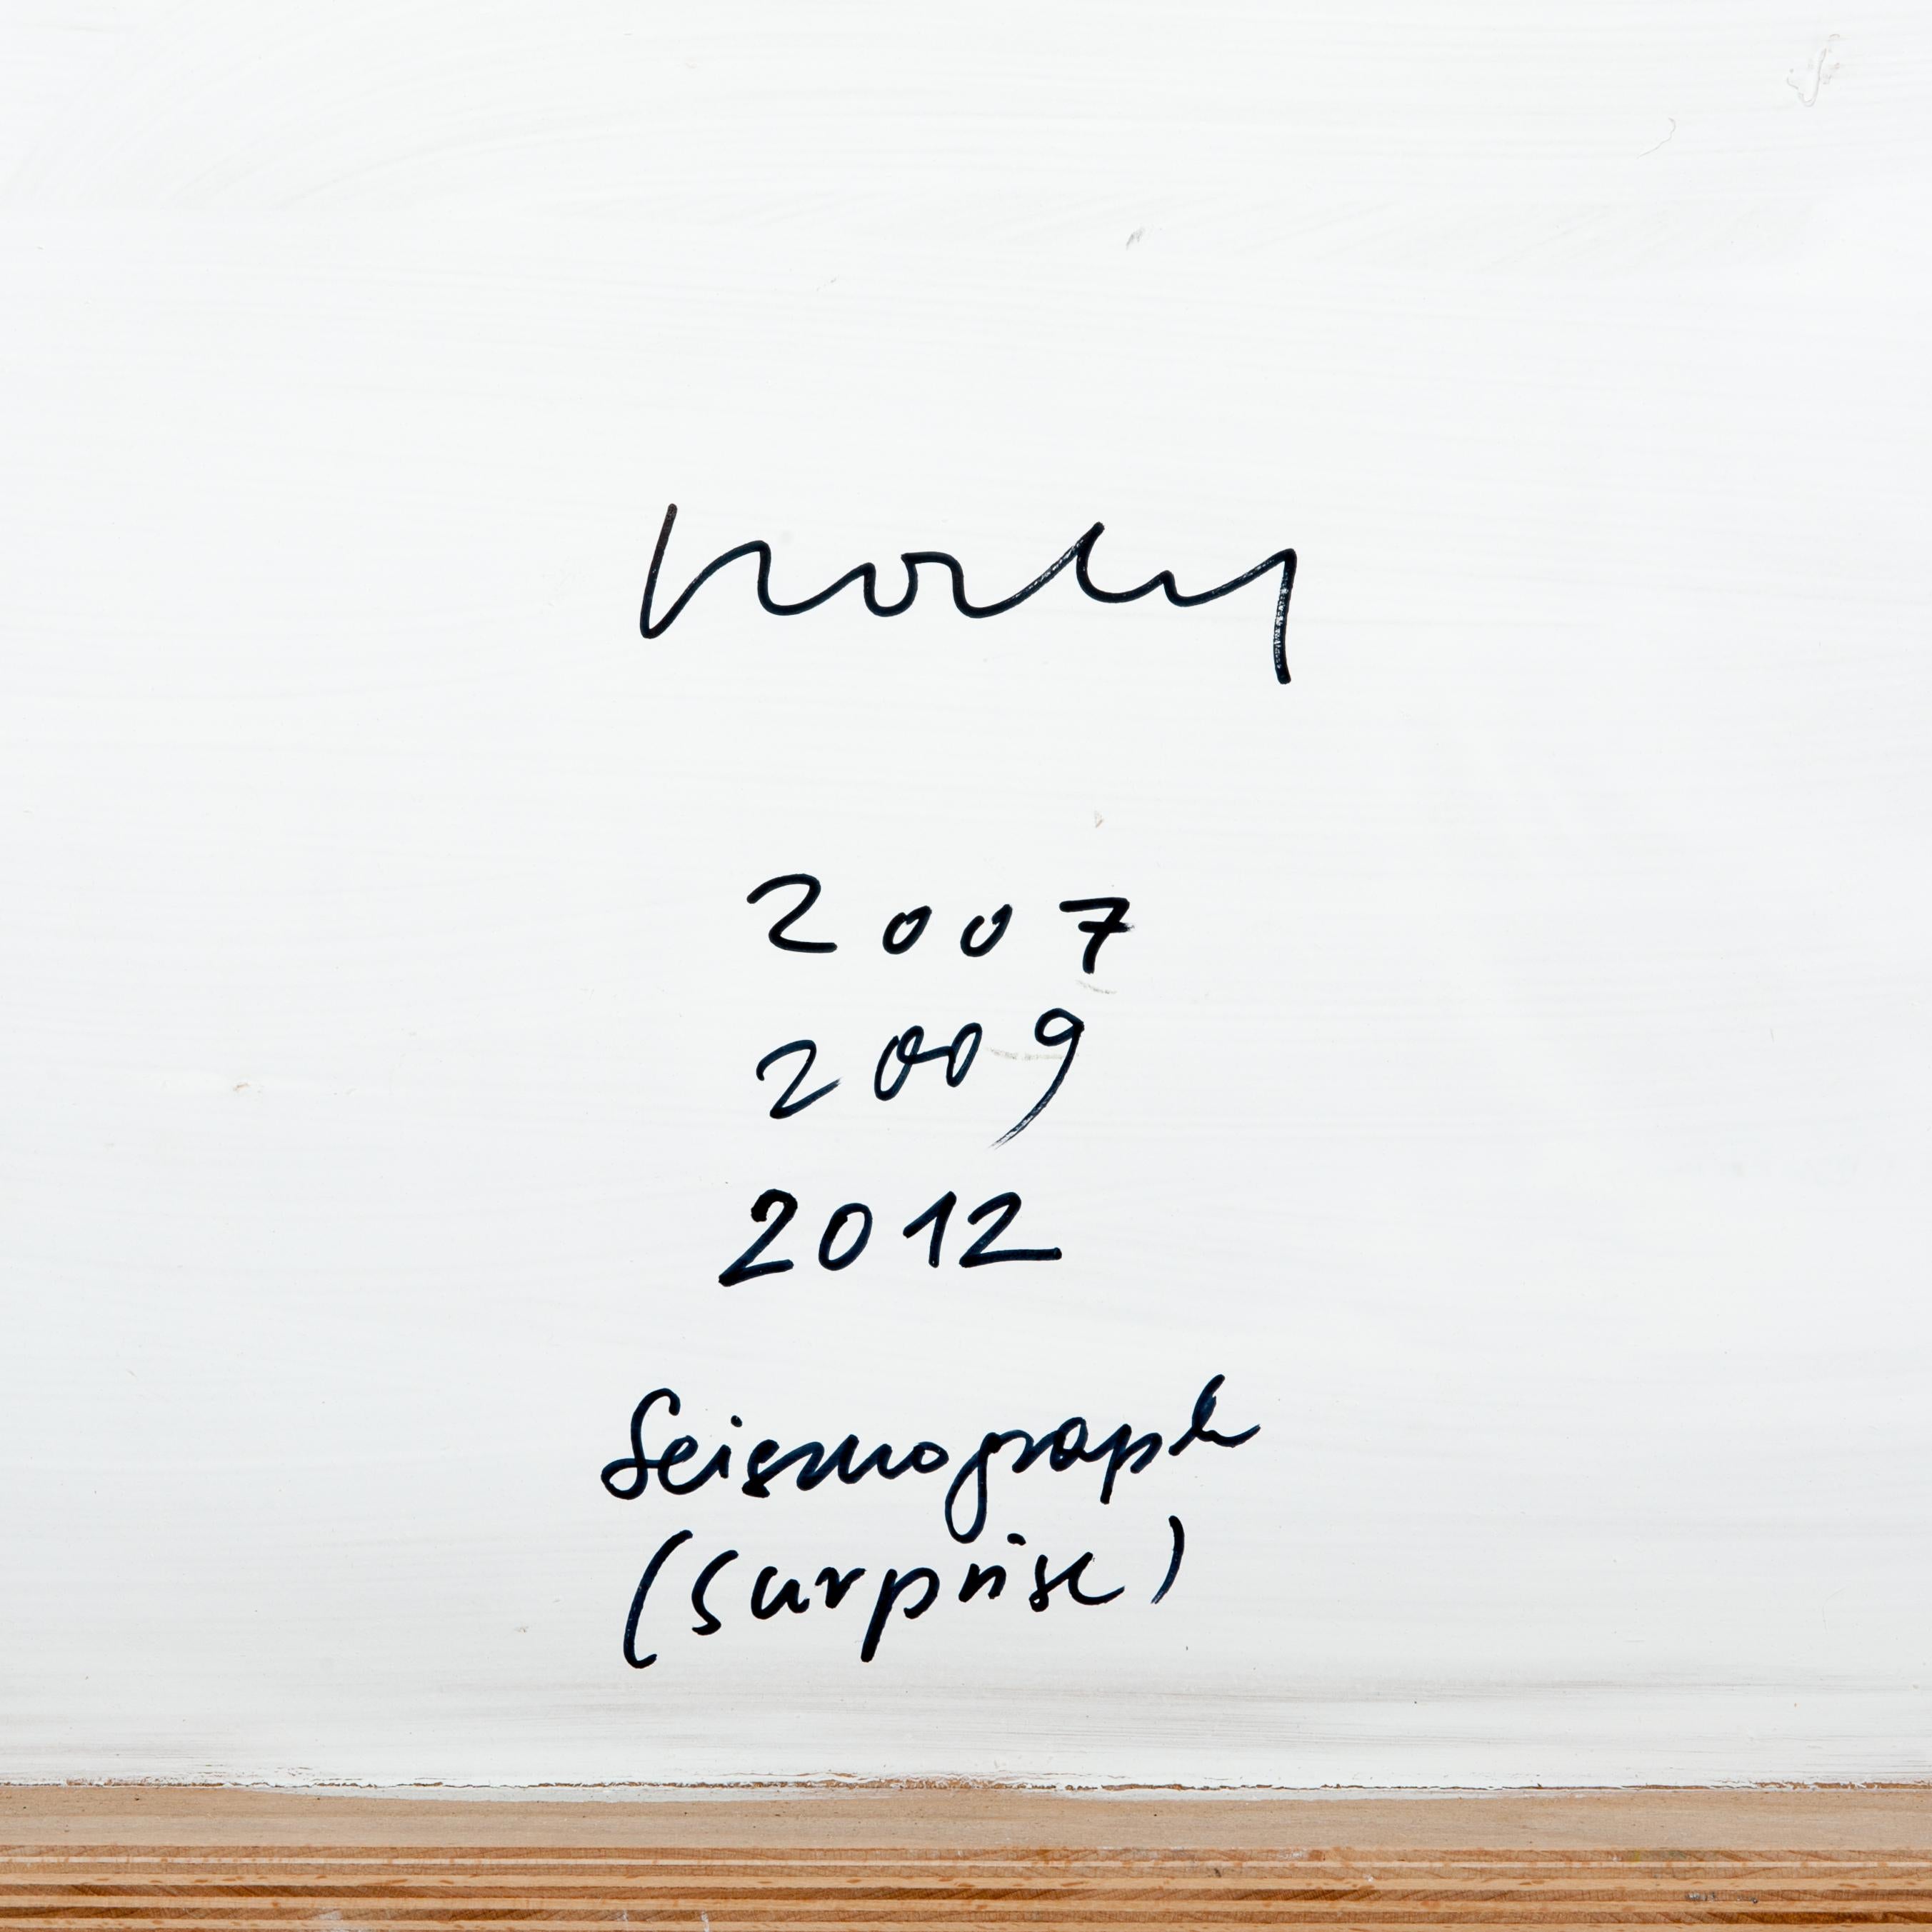 2007
2009
2012
Seismograph
(surprise)